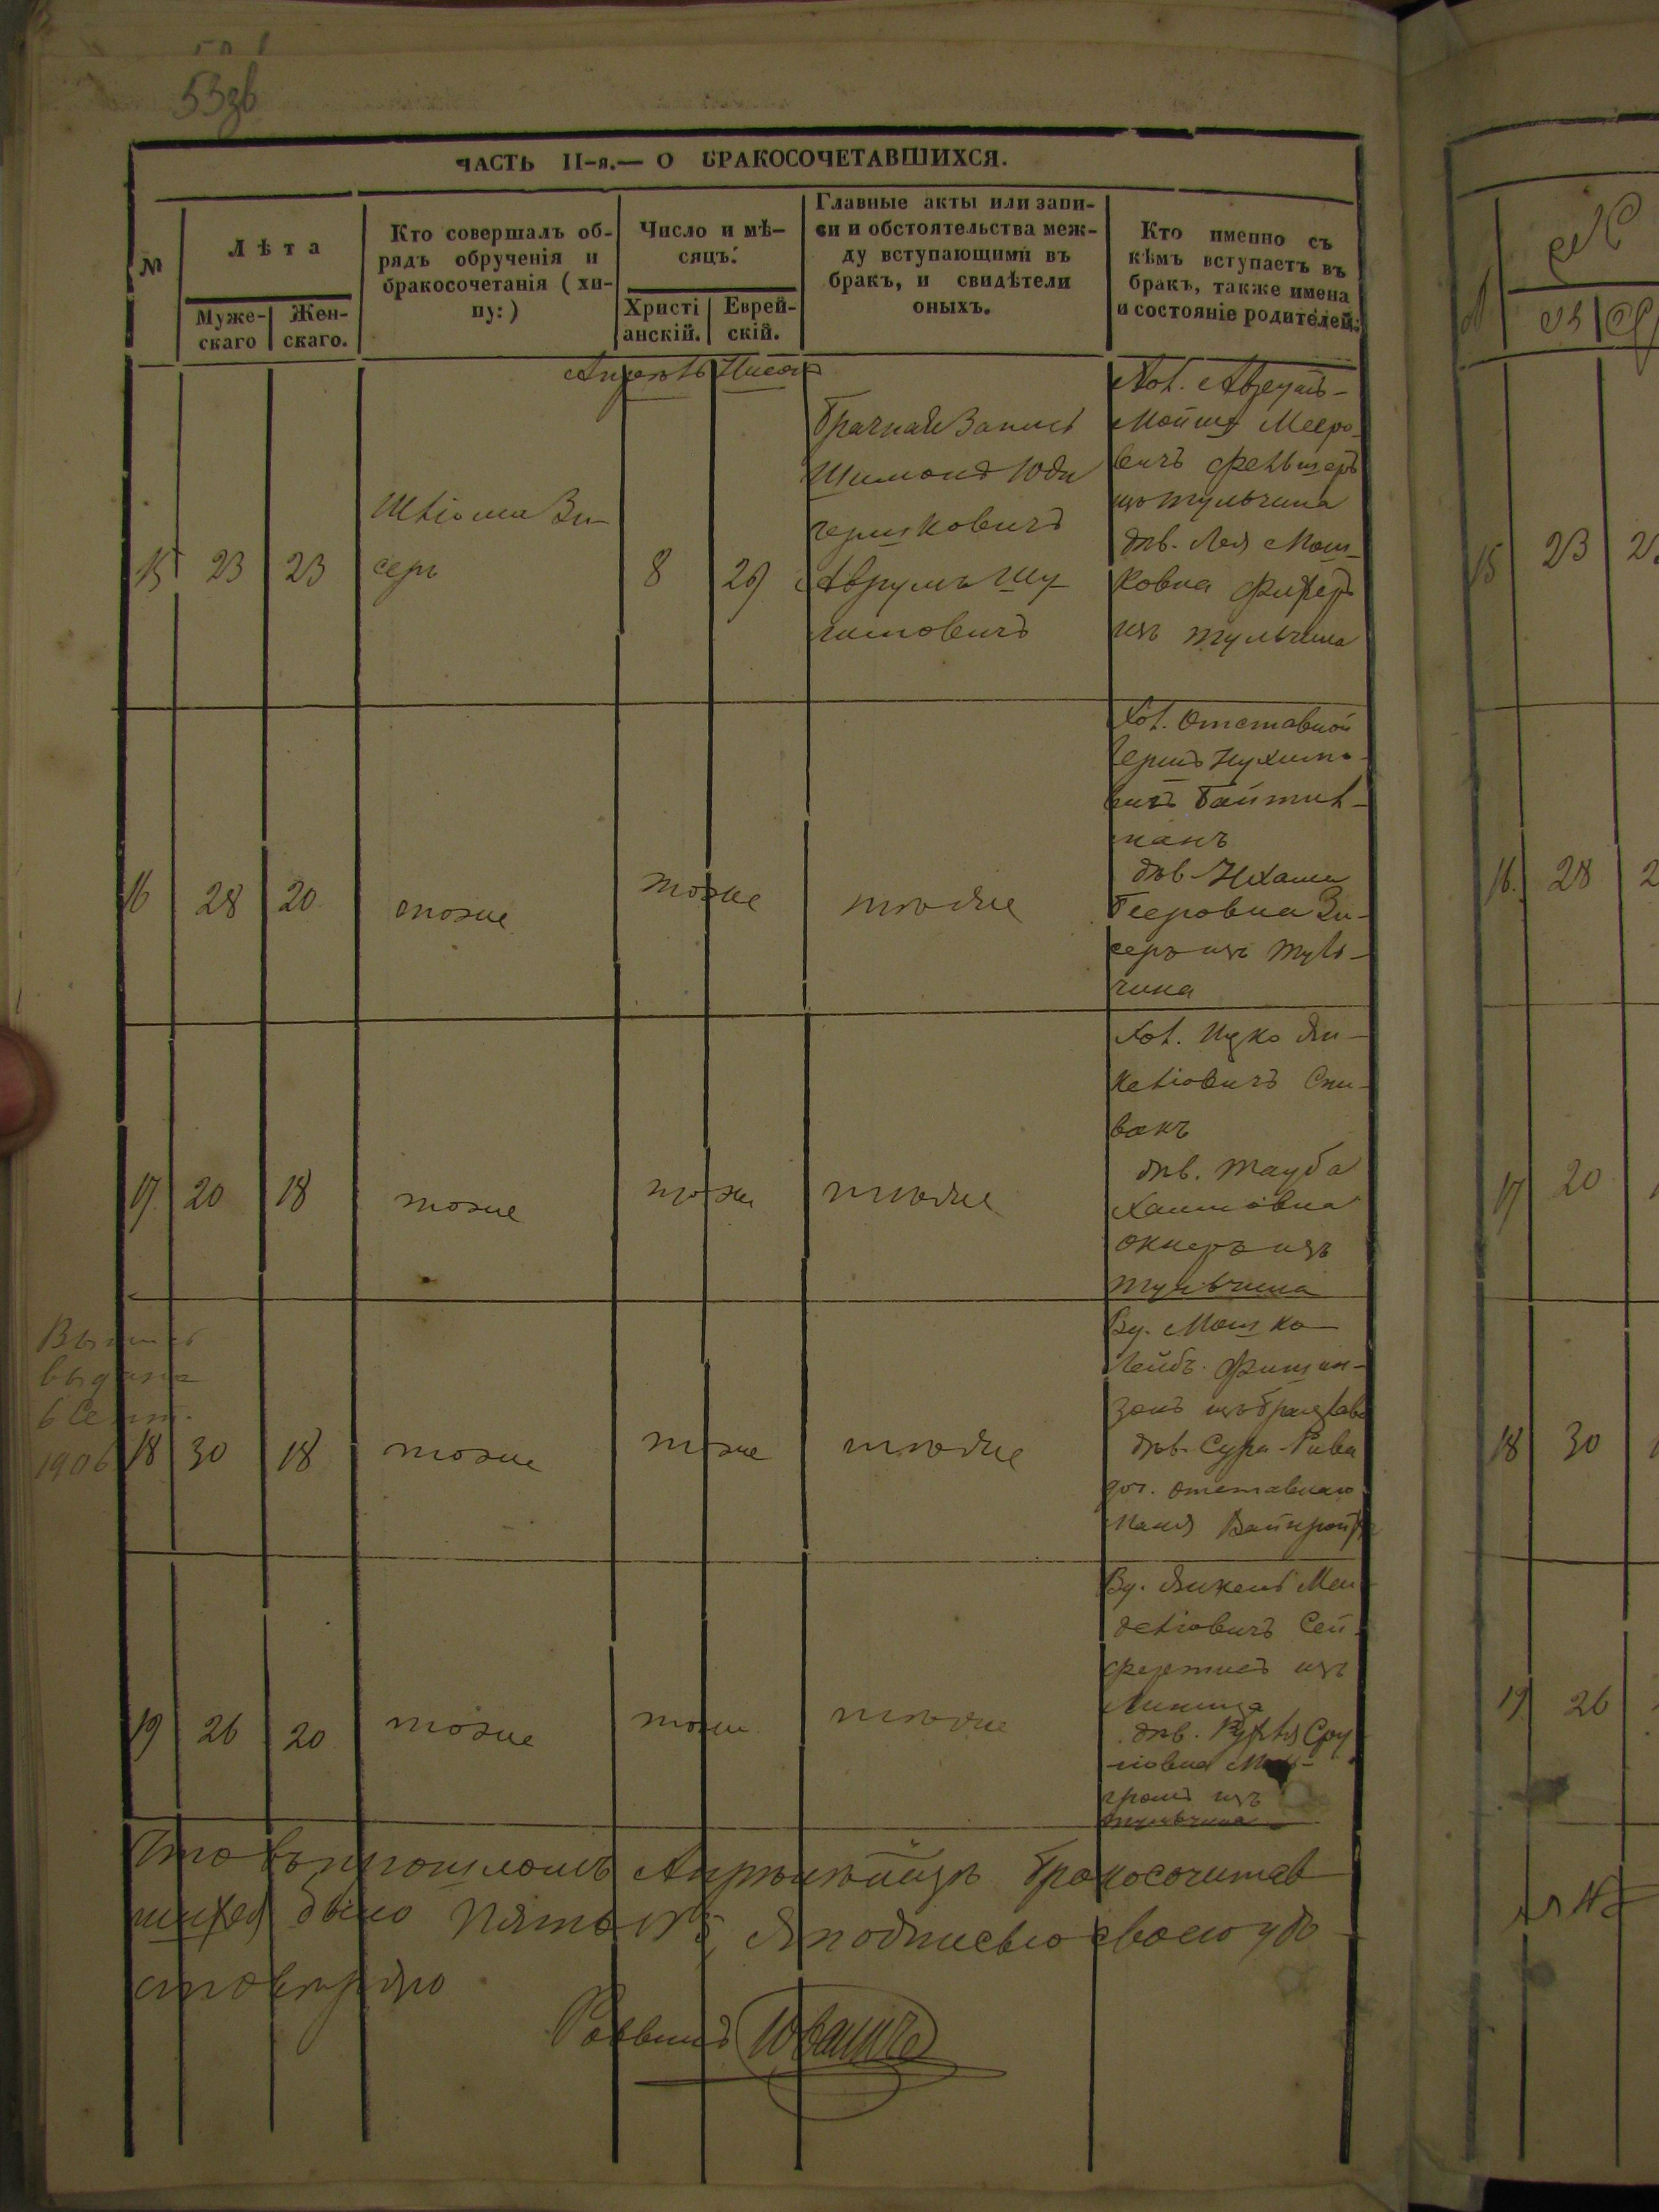 53зв
ЧАСТЬ II-я.— О БРАКОСОЧЕТАВШИХСЯ.
№
Лѣта
Муже-
скаго
Жен-
скаго.
Кто совершалъ об-
рядъ обрученія и
бракосочетанія (хи-
пу:)
Число и мѣ-
сяцъ:
Христі
анскій.
Еврей-
скій.
Главные акты или запи-
си и обстоятельства меж-
ду вступающими въ
бракъ, и свидѣтели
оныхъ.
Кто именно съ
кѣмъ вступаетъ въ
бракъ, также имена
и состояніе родителей:
Апрель Нисон
15 23 23
Шліома Зи-
серъ
8 29
Брачная Запись
Шимонъ Юди
Гершковичъ
Аврумъ Шу
лимовичъ
Хол. Аврумъ-
Мойше Мееро-
вичъ Фельшеръ
изъ Тульчина
дѣв. Лея Мош-
ковна
изъ Тульчина
16 28 20 тоже тоже тѣ же
Хол. Отставной
Гершъ Нухимо-
вичъ Байтил-
манъ
дѣв.
Бееровна Зи-
серъ изъ Туль-
чина
17 20 18 тоже тоже тѣ же
Хол. Ицко Ян-
келіовичъ Спи-
вакъ
дѣв. Тауба
Хаимовна
Окнеръ изъ
Тульчина
Выпись
выдана
6 Сент.
1906
18 30 18 тоже тоже тѣ же
Вд. Мошко
Лейбъ Фишин-
зонъ изъ Брацлава
дѣв. Сура-Рива
доч. отставнаго
19 26 20 тоже тоже тѣ же
Вд. Янкель Мен
деліовичъ Сей-
фертисъ изъ
дѣв. Рухля Сру
ліовна
изъ
Тульчина
Что въ прошломъ Апрѣлѣ мѣсяцѣ бракосочитав
шихся было Пять №5, Я подписью своею удо
стовѣряю
Раввинъ
15 23
16. 28
17 20
18 30
19 26